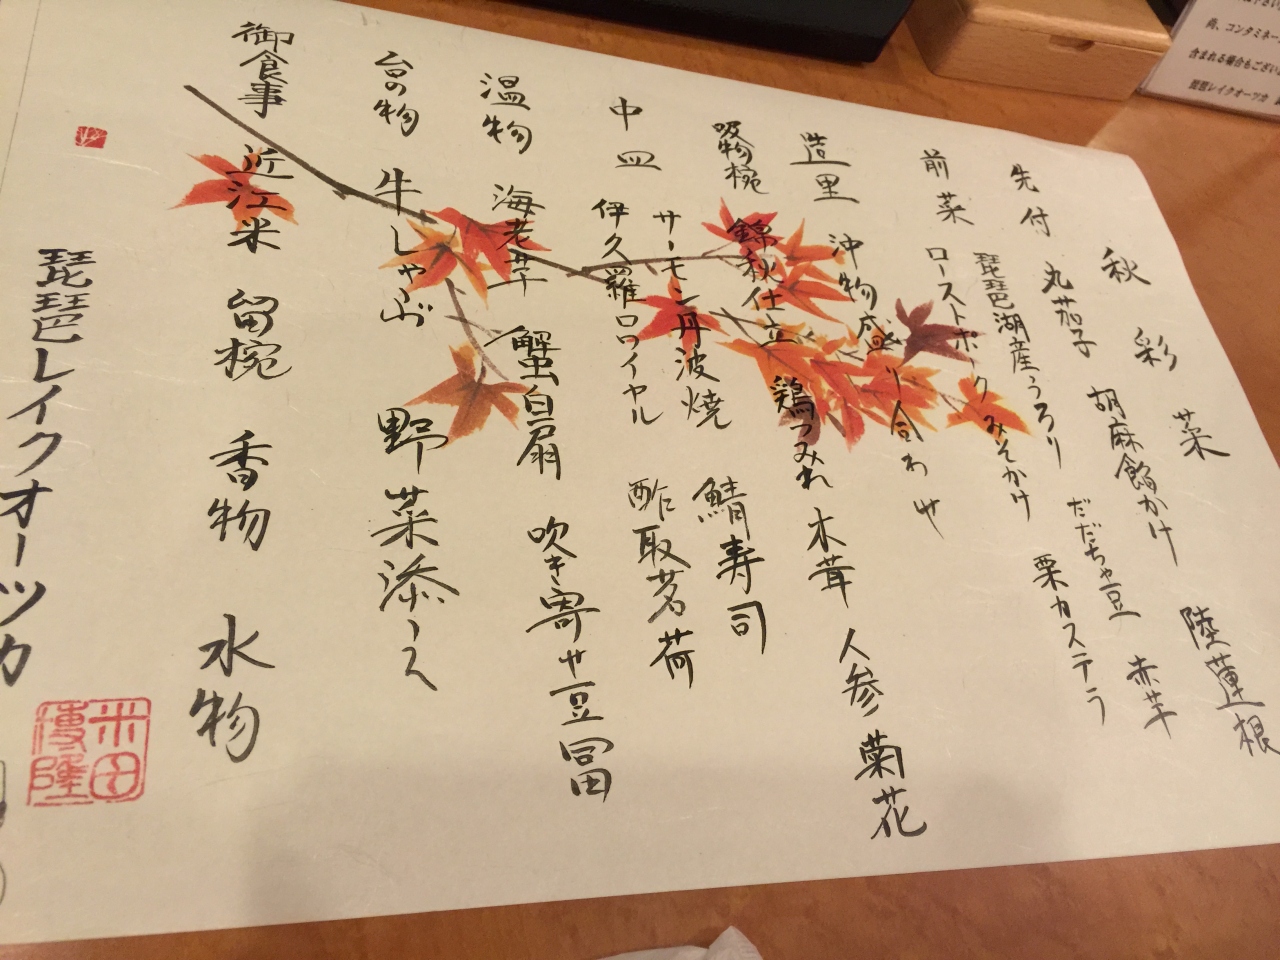 秋彩菜
先付 丸茄子 胡麻餡かけ 陸蓮根
琵琶湖産うろり だだちゃ豆 赤芋
前菜 ローストポークみそかけ 栗カステラ
造里 沖物盛り合わせ
吸物椀 錦秋仕立 鶏つみれ 木茸 人参 菊花
中皿 サーモン丹波焼 鯖寿司
伊久羅ロワイヤル 酢取茗荷
温物 海老芋 蟹白扇 吹き寄せ豆冨
台の物 牛しゃぶ 野菜添え
御食事 近江米 留椀 香物 水物
琵琶レイクオーツカ
米田
博隆
尚、コンタミネー
含まれる場合もござい
琵琶レイクオーツカ